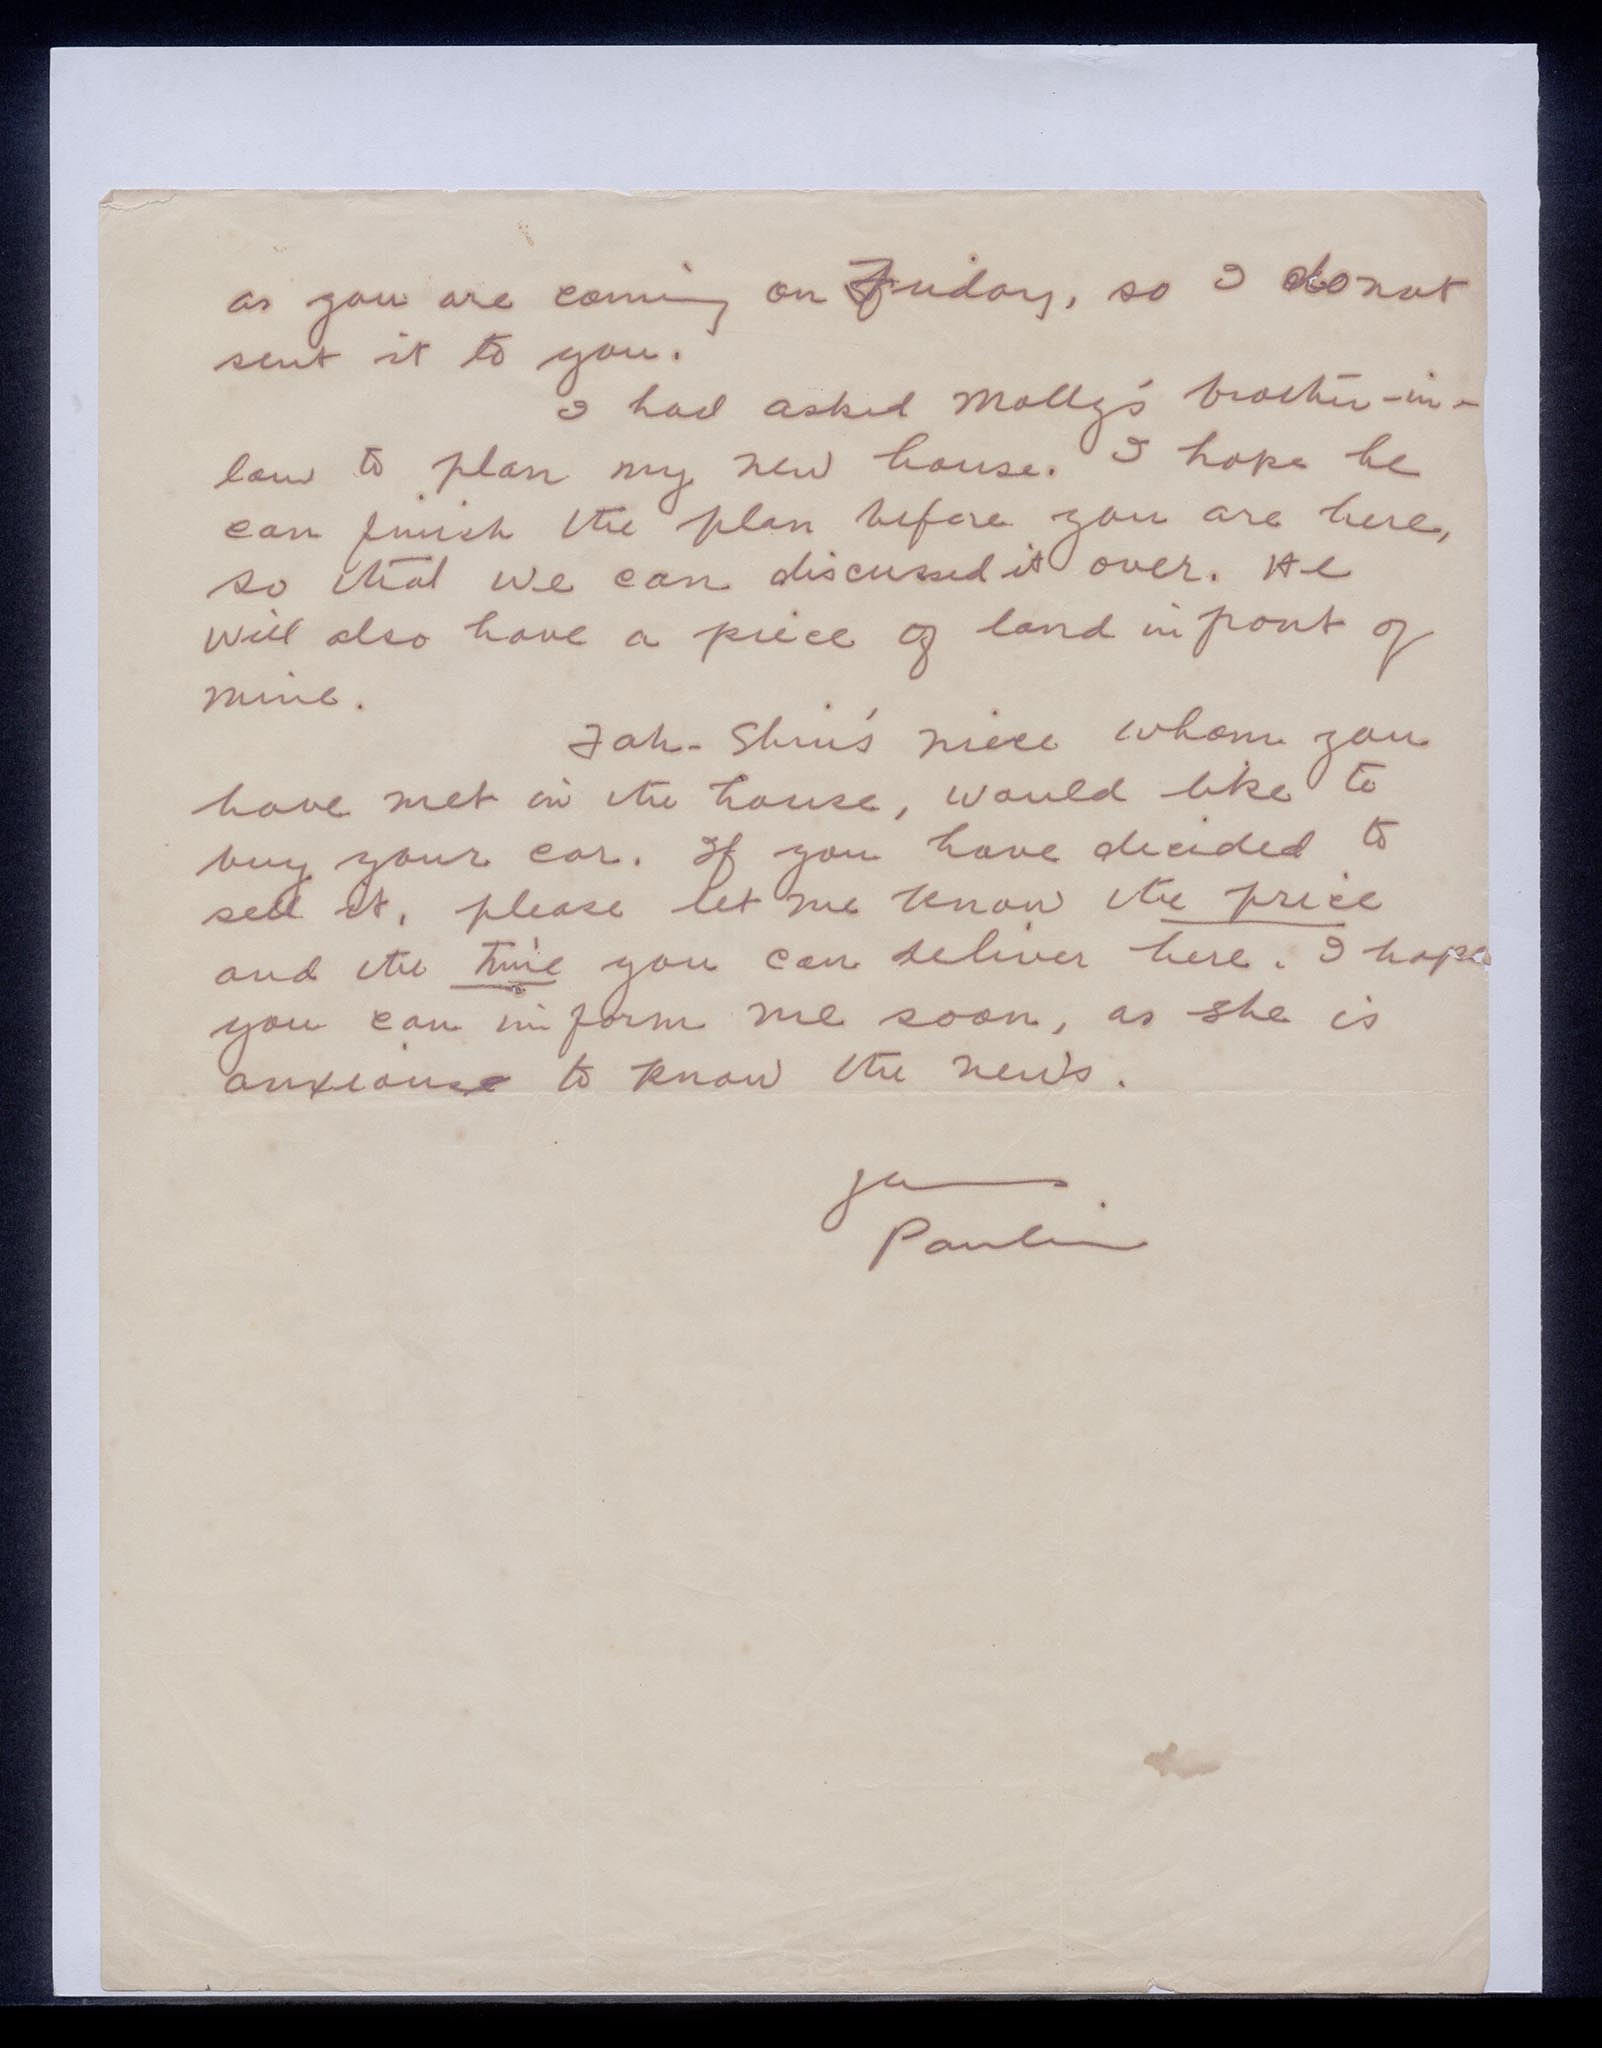 as you are coming on Friday, so I do not
sent it to you.
I had asked Molly's brother-in-
law to plan my new house. I hope he
can finish the plan before you are here,
so that we can discussed it over. He
will also have a piece of land in front of
mine.
niece whom you
have met in the house, would like to
buy your car. If you have decided to
sell it, please let me know the price
and the time you can deliver here. I hope
you can inform me soon, as she is
anxiouse to know the news.